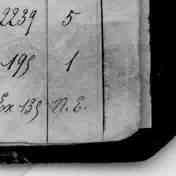 2239 5
195 1
Ex 135 N. E.